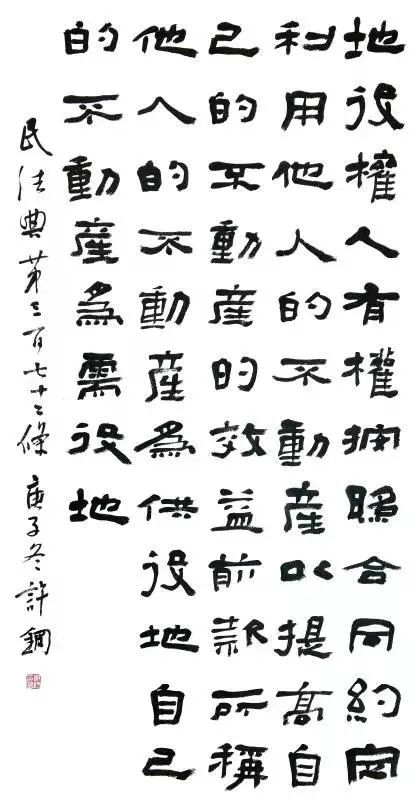 地役權人有權按照合同約定
利用他人的不動產以提高自
己的不動產的效益前款所稱
他人的不動產為供役地自己
的不動產為需役地
民法典第三百七十二條 庚子冬許鋼